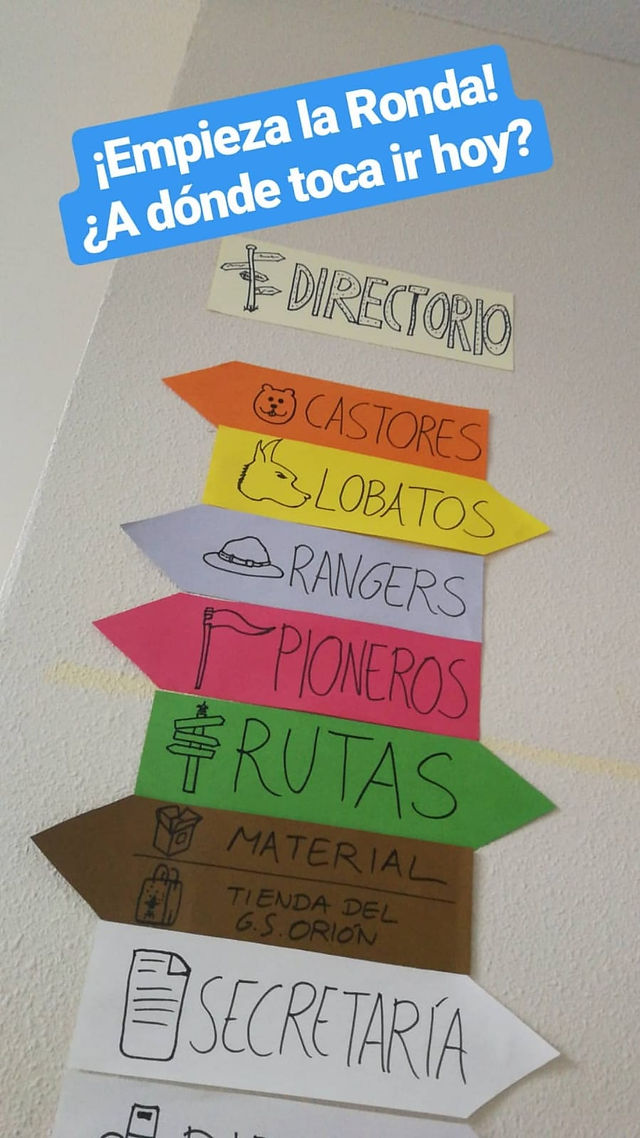 ¡Empieza la Ronda!
¿A dónde toca ir hoy?
DIRECTORIO
CASTORES
LOBATOS
RANGERS
PIONEROS
RUTAS
MATERIAL
TIENDA DEL
G.S. ORIÓN
SECRETARÍA